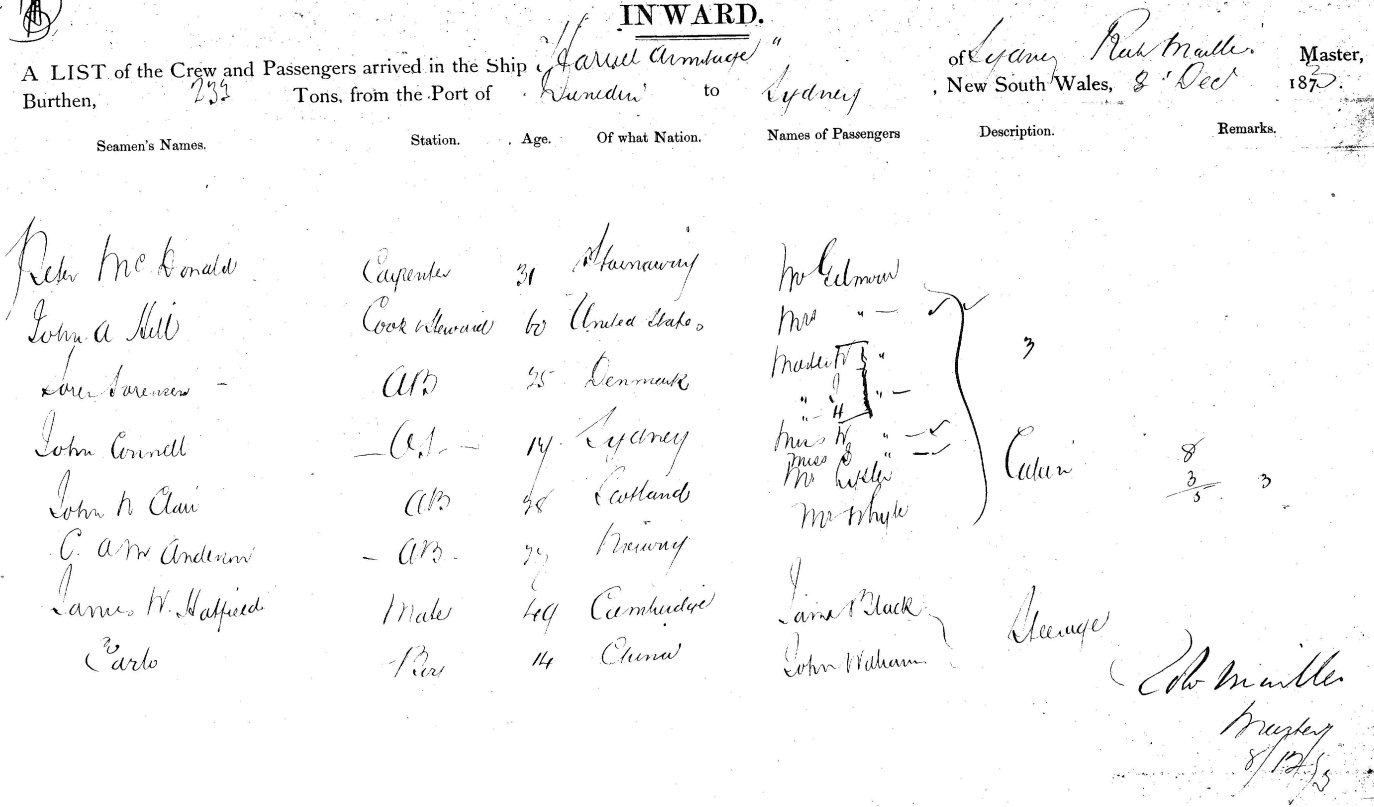 INWARD.
A LIST of the Crew and Passengers arrived in the Ship "Harriet Armitage" of Sydney Master,
Burthen, 233 Tons, from the Port of Dunedin to Sydney, New South Wales, 8 Dec 1873.
Seamen's Names. Station. Age. Of what Nation. Names of Passengers Description. Remarks.
Peter McDonald Carpenter 31 Mr Gilmour
John A Hill Cook & Steward 60 United States. Mrs " —
Soren Sorensen — AB 25 Denmark Master W " 3
" J " —
" H
John Connell — OS — 17 Sydney Miss W " —
Miss " —
Mr Cabin 8
John N Clair AB 28 Scotland Mr Whyte 3 3
5
C. A M Anderson — AB — 27 Norway
James W. Hatfield Mate 49 Cambridge James Black Steerage
Carlo Boy 14 China John Williams
Mailler
Master
8/12/73